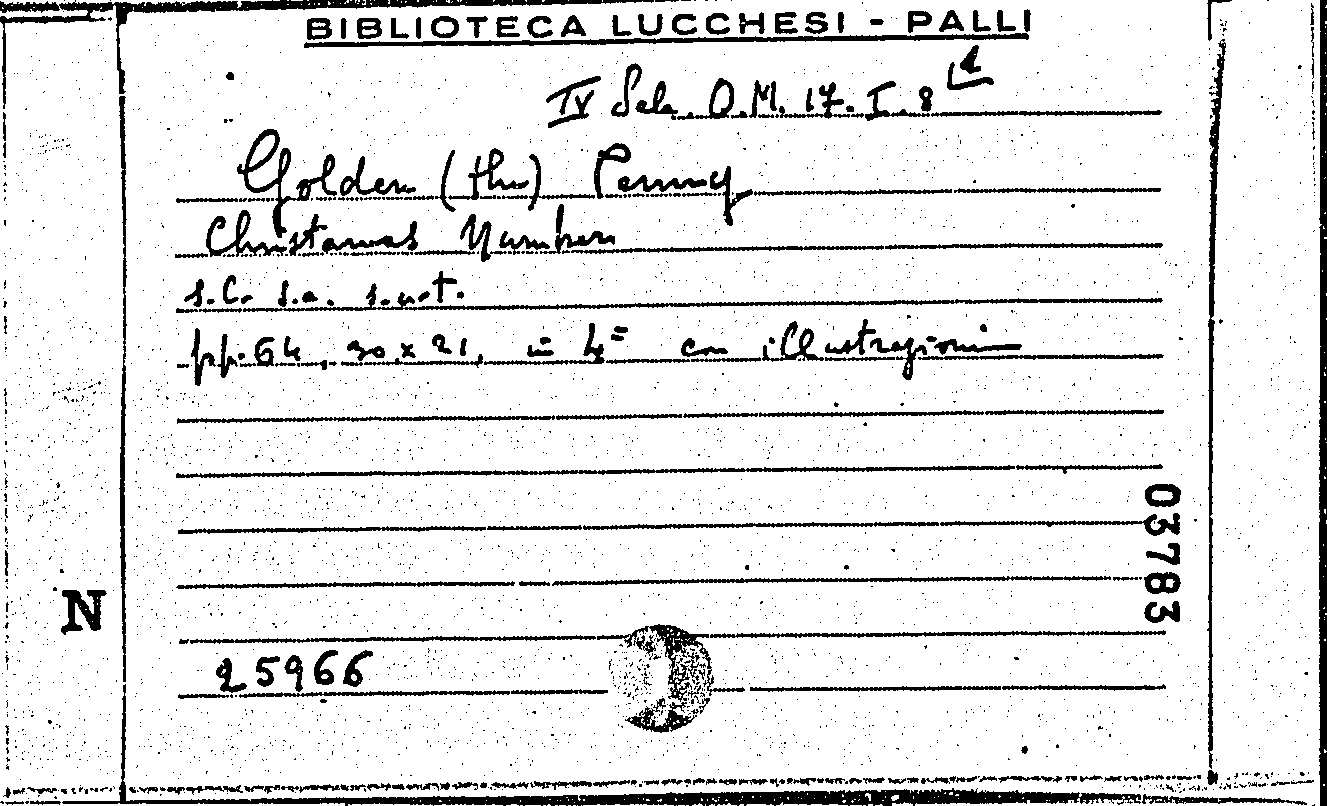 BIBLIOTECA LUCCHESI - PALLI
IV Sala O.M. 17. I. 8
Golden (the) Penny
Christmas Number
s.l. s.a. s.n.t.
pp. 64, 30 x 21, in 4= con illustrazioni
03783
N
25966